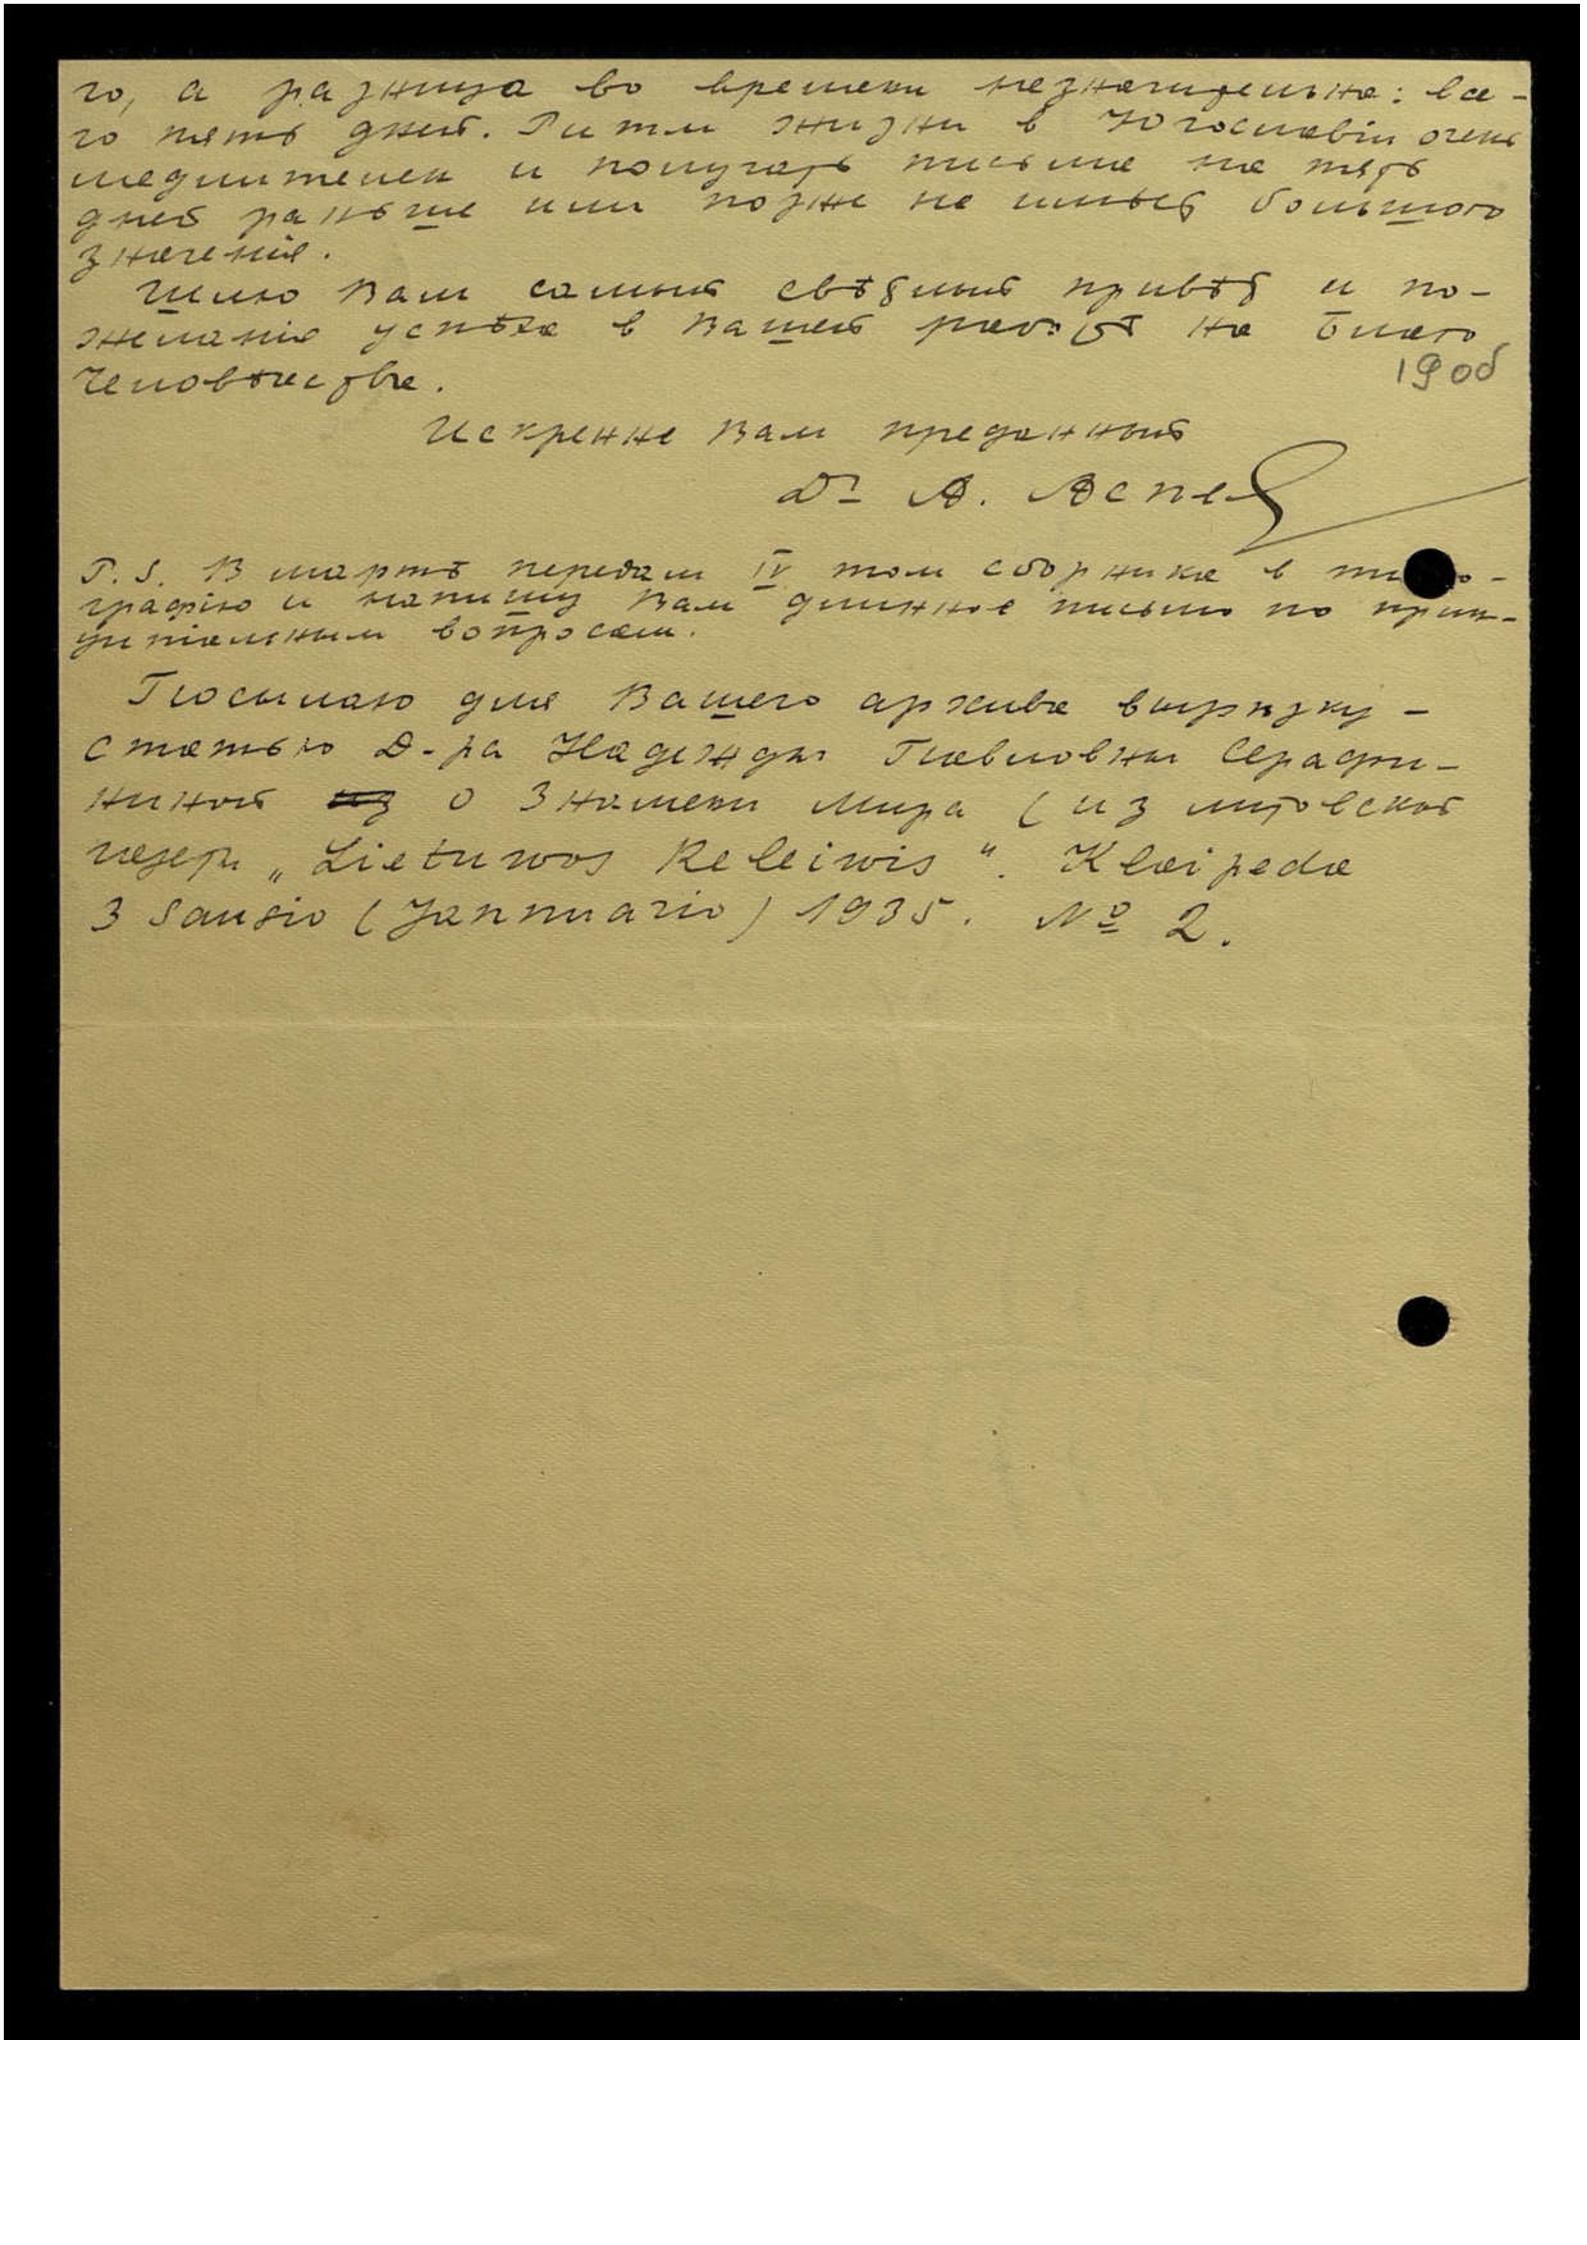 го, а разница во времени незначительна: все-
го пять дней. Ритм жизни в Югославіи очень
медлителен и получать письма на пять
дней раньше или позже не имѣет большого
значенія.
Шлю Вам самый свѣтлый привѣт и по-
желанія успѣха в Вашей работѣ на благо
человѣчества.
190об
Искренне Вам преданный
Dr А. Асеев
P.S. В мартѣ передам IV том сборника в типо-
графію и напишу Вам длинное письмо по прин-
ципіальным вопросам.
Посылаю для Вашего архива вырѣзку -
статью Д-ра Надежды Павловны Серафи-
ниной из о Знамени Мира (из литовской
газеты „Lietuwos Keleiwis“. Klaipeda
3 Sausio (Jannuario) 1935. № 2.